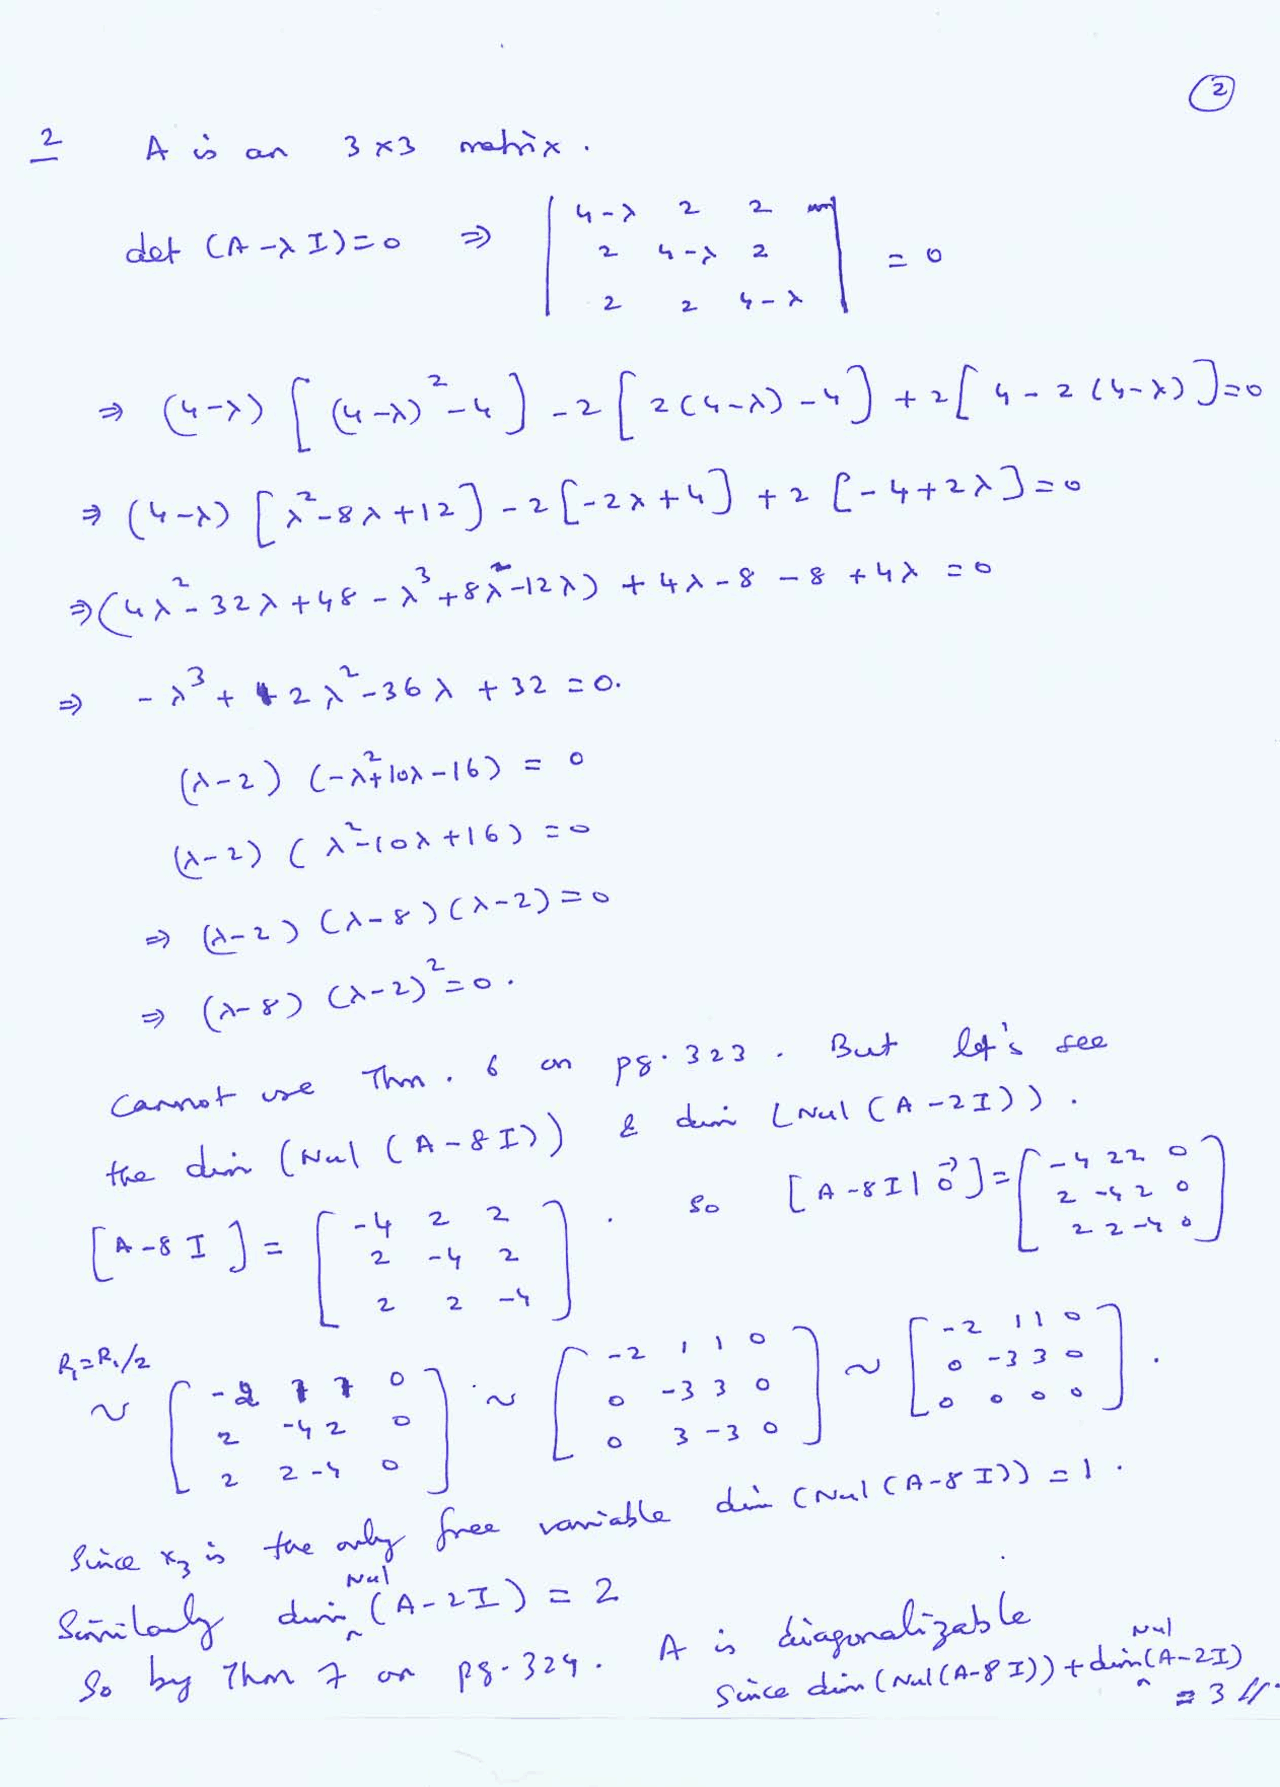 ②
2 A is an 3×3 matrix.
det (A-λI)=0 ⇒ | 4-λ 2 2 |
| 2 4-λ 2 | = 0
| 2 2 4-λ |
⇒ (4-λ) [ (4-λ)² -4 ] -2 [ 2(4-λ) -4 ] + 2 [ 4 - 2(4-λ) ] =0
⇒ (4-λ) [ λ²-8λ+12 ] -2 [-2λ+4] + 2 [-4+2λ] =0
⇒ (4λ²-32λ+48-λ³+8λ²-12λ) + 4λ-8 -8 +4λ =0
⇒ -λ³ + 12λ²-36λ +32 =0.
(λ-2) (-λ²+10λ-16) = 0
(λ-2) (λ²-10λ+16) =0
⇒ (λ-2) (λ-8) (λ-2) =0
⇒ (λ-8) (λ-2)² =0.
Cannot use Thm. 6 on pg. 323. But let's see
the dim (Nul (A-8I)) & dim (Nul (A-2I)).
[A-8I] = [ -4 2 2 ] . So [A-8I | 0⃗] = [ -4 2 2 0 ]
[ 2 -4 2 ] [ 2 -4 2 0 ]
[ 2 2 -4 ] [ 2 2 -4 0 ]
R₁=R₁/2
~ [ -2 1 1 0 ] ~ [ -2 1 1 0 ] ~ [ -2 1 1 0 ] .
[ 2 -4 2 0 ] [ 0 -3 3 0 ] [ 0 -3 3 0 ]
[ 2 2 -4 0 ] [ 0 3 -3 0 ] [ 0 0 0 0 ]
Since x₃ is the only free variable dim (Nul (A-8I)) =1.
Similarly dim Nul (A-2I) = 2
So by Thm 7 on pg. 324. A is diagonalizable
since dim (Nul (A-8I)) + dim Nul (A-2I)
= 3 //.